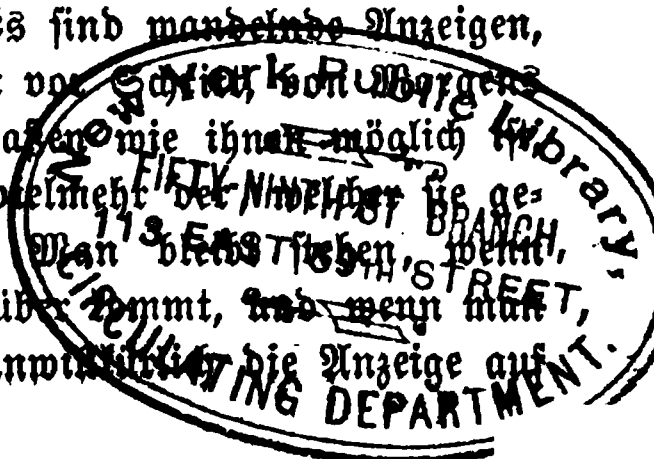 es sind wandelnde Anzeigen,
vor Schritt, von Morgens
wie ihnen möglich ist
vielmehr der welcher sie ge-
Man bleibt stehen, wenn,
über kommt, und wenn man
unwillkürlich die Anzeige auf
New York Public Library,
FIFTY-NINTH ST BRANCH
113 EAST 59TH STREET,
CIRCULATING DEPARTMENT.